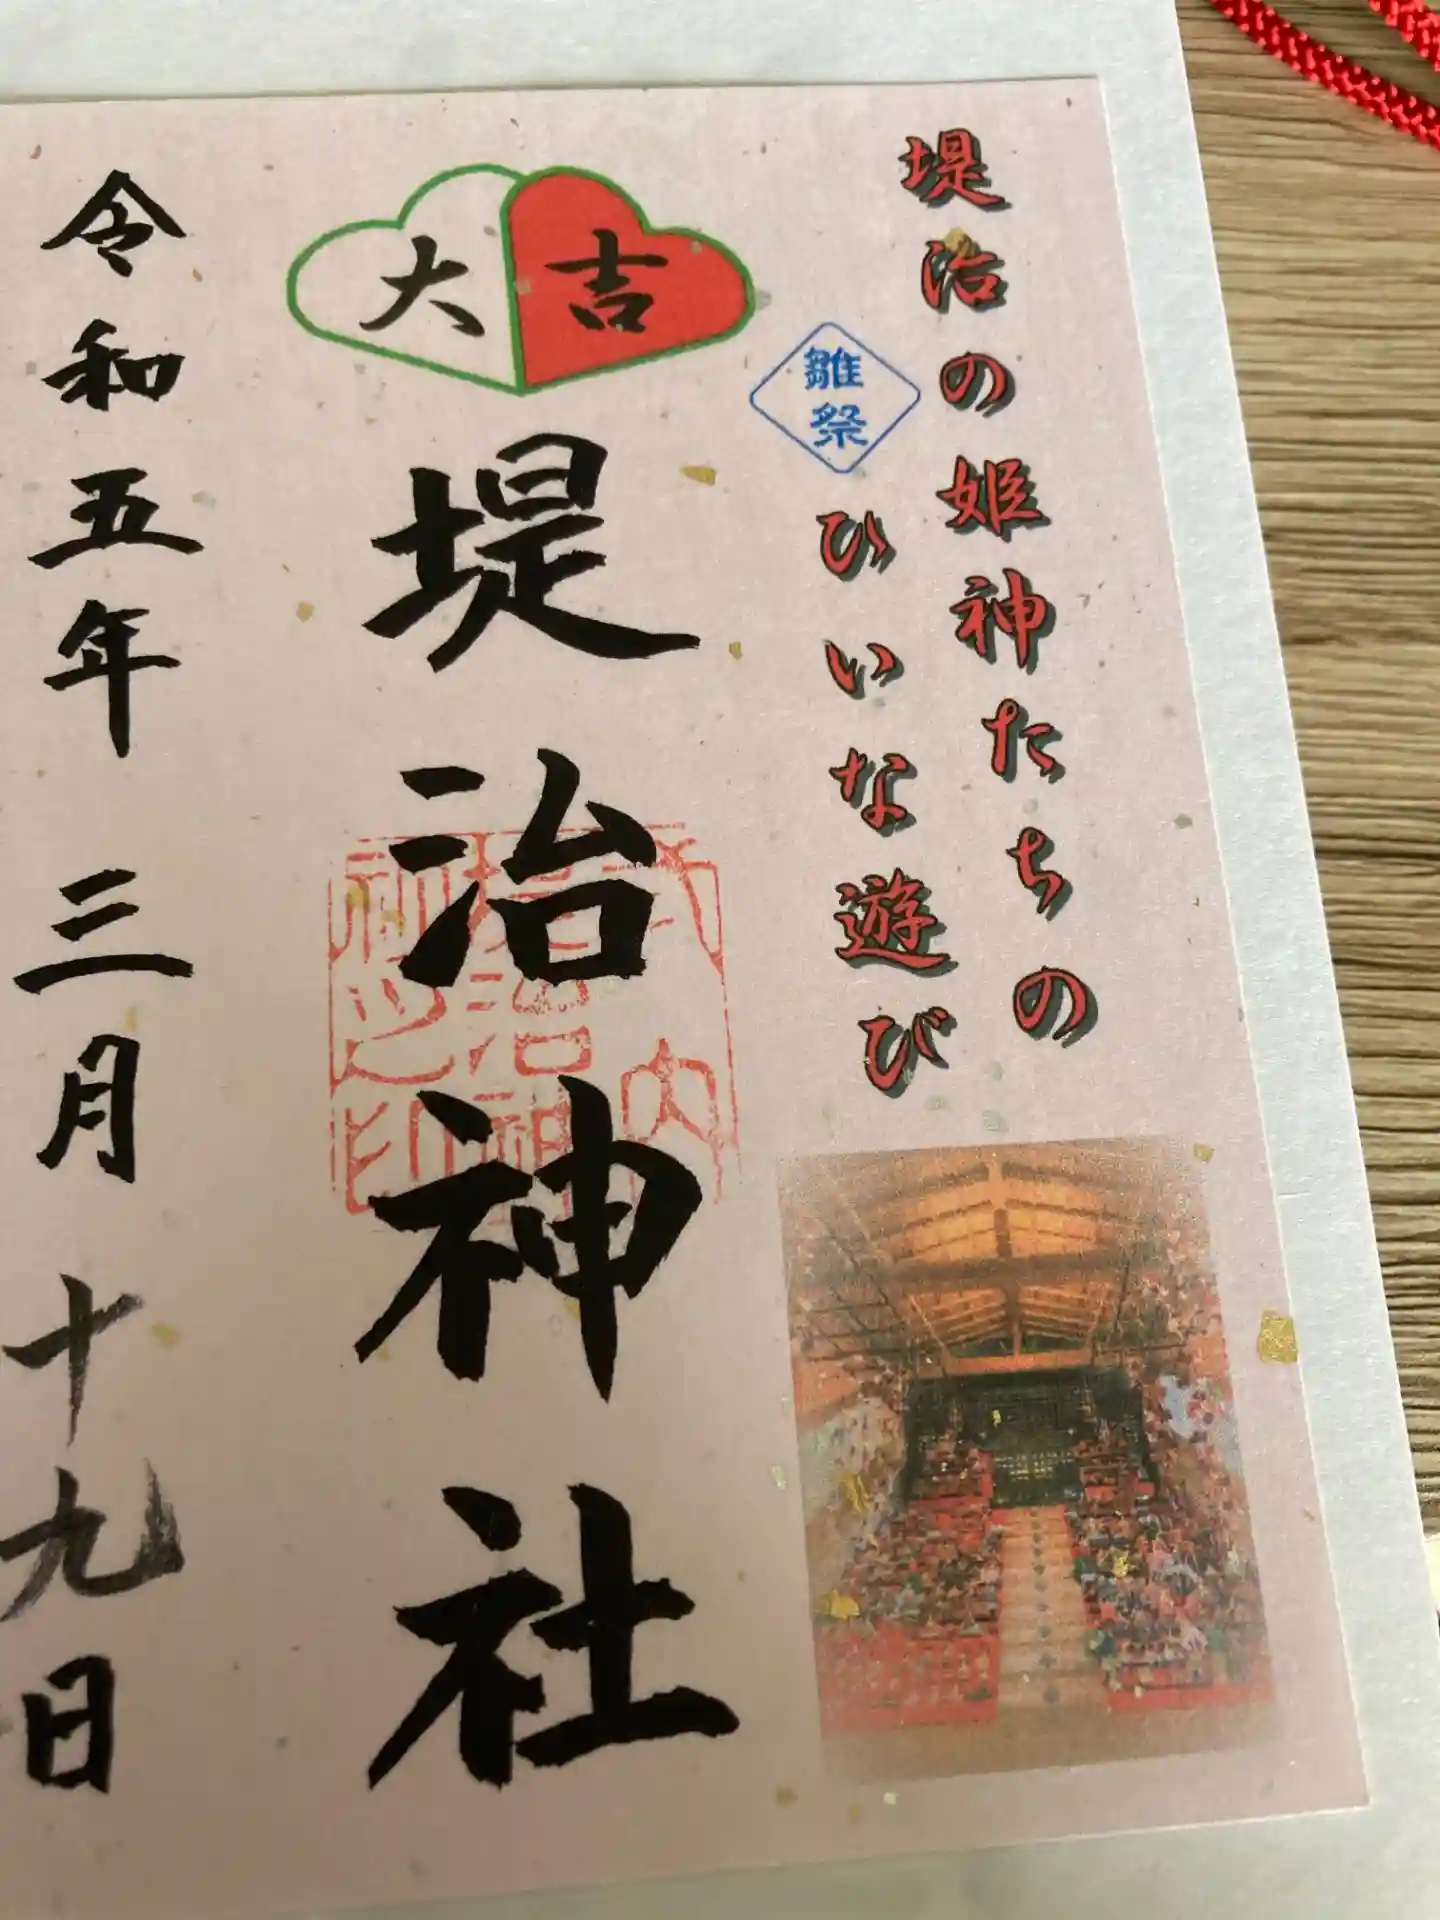 堤治の姫神たちの
雛祭
ひいな遊び
大吉
堤治神社
令和五年 三月 十九日